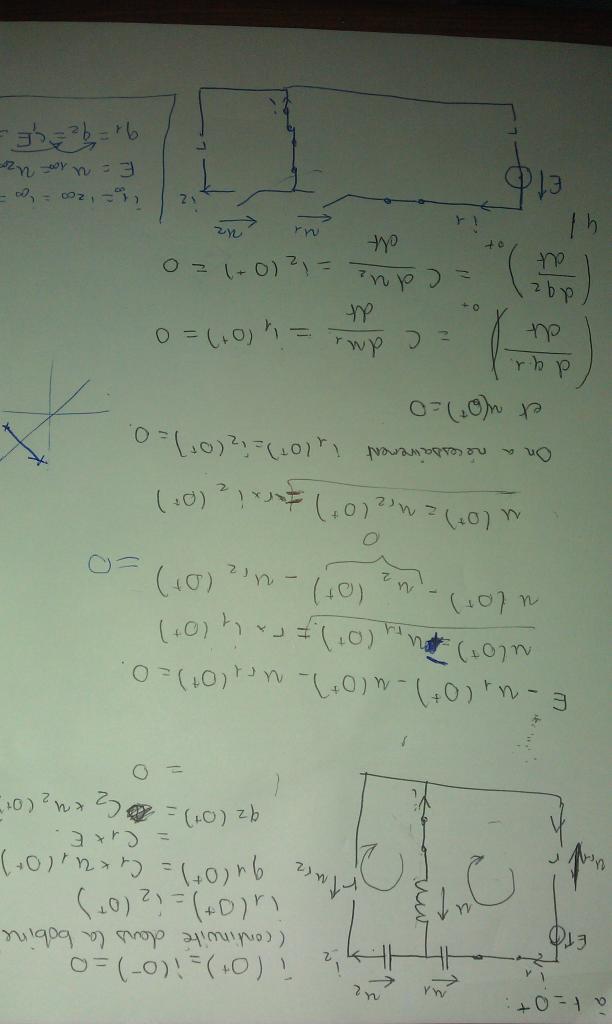 à t = 0+ :
i(0+) = i(0-) = 0
(continuité dans la bobine
i1(0+) = i2(0+)
q1(0+) = C1 × u1(0+)
= C1 × E.
q2(0+) = C2 × u2(0+)
= 0
i1
u1
u2
i2
E
u
i
r
ur1
r
ur2
E - u1(0+) - u(0+) - ur1(0+) = 0.
u(0+) = ur1(0+) = r × i1(0+)
u(0+) - u2(0+) - ur2(0+) = 0
0
u(0+) = ur2(0+) = r × i2(0+)
On a nécessairement i1(0+) = i2(0+) = 0.
et u(0+) = 0
(dq1/dt)0+ = C du1/dt = i1(0+) = 0
(dq2/dt)0+ = C du2/dt = i2(0+) = 0
4/
E
i1
u1
u2
i2
i
i1∞ = i2∞ = i∞ =
E = u1∞ = u2∞
q1 = q2 = CE =